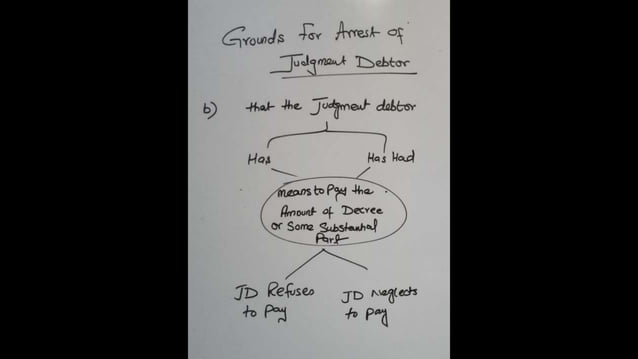 Grounds For Arrest of
Judgment Debtor
b) that the Judgment debtor
Has Has Had
means to Pay the
Amount of Decree
or Some Substantial
Part
JD Refuses JD Neglects
to pay to pay